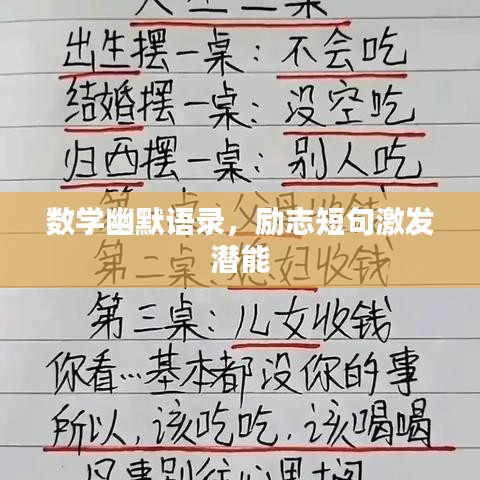 出生摆一桌：不会吃
结婚摆一桌：没空吃
归西摆一桌：别人吃
数学幽默语录，励志短句激发
潜能
第二桌：媳妇收钱
第三桌：儿女收钱
你看…基本都没你的事
所以，该吃吃，该喝喝